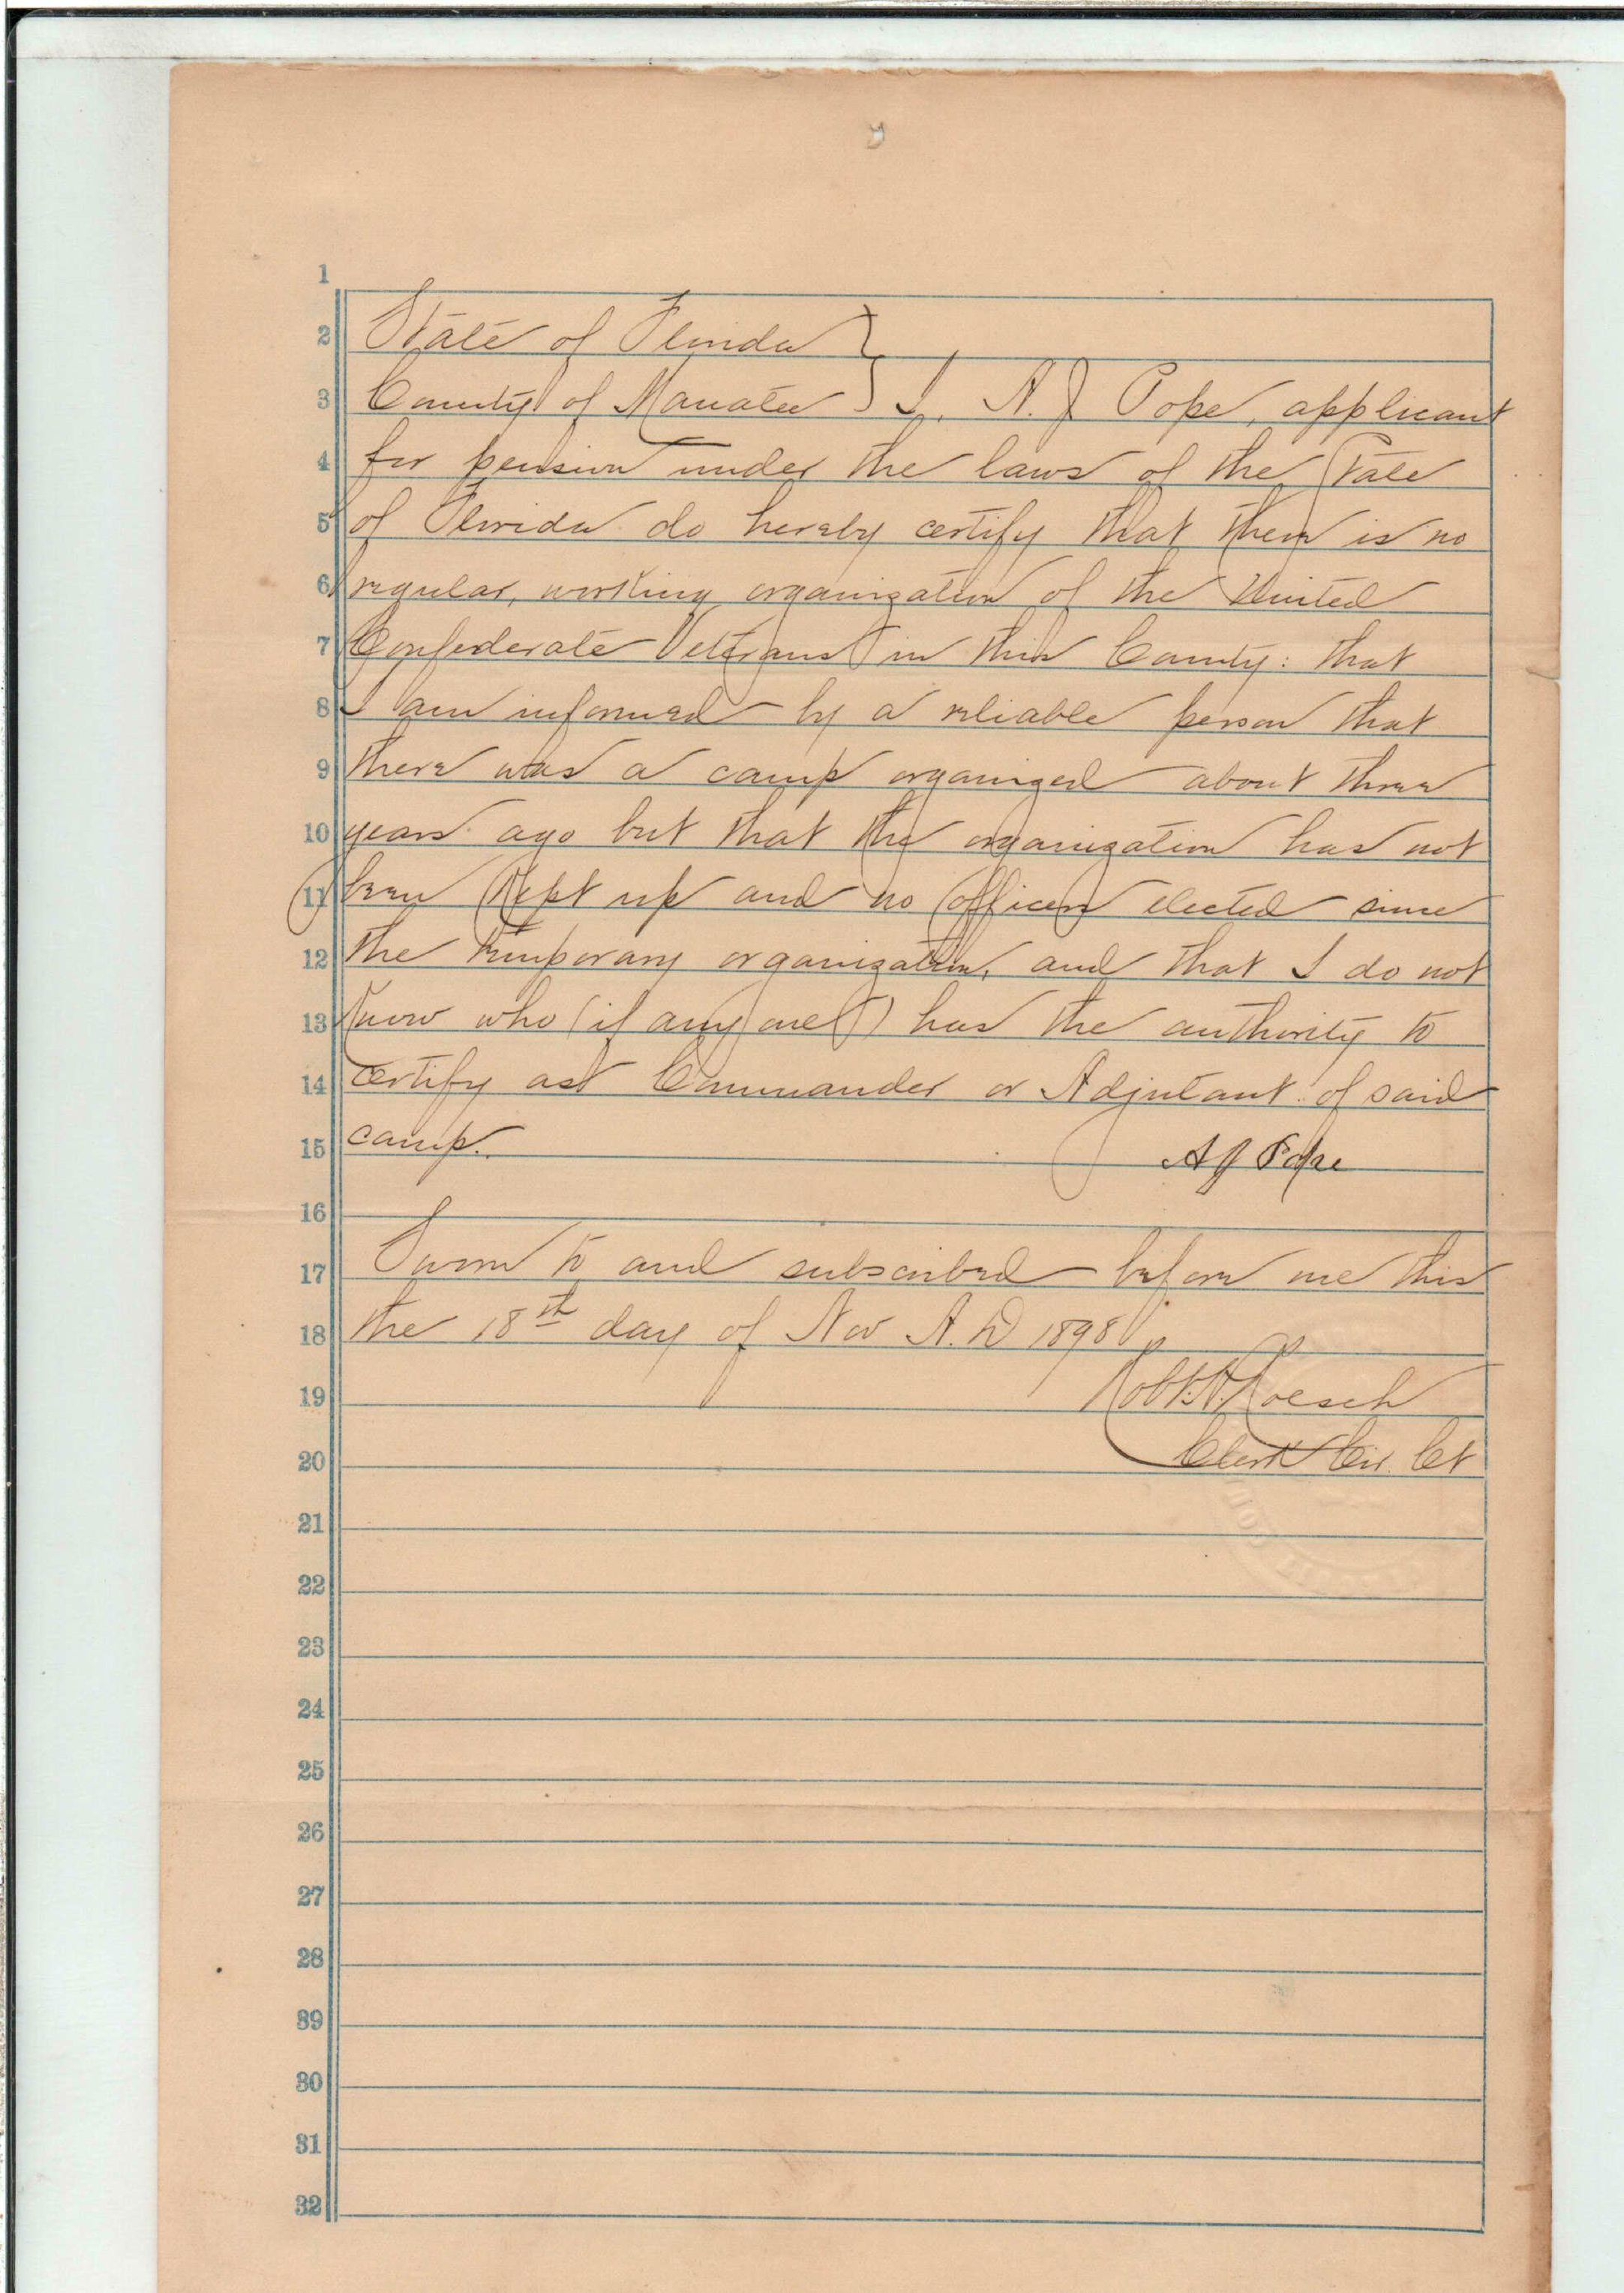 1
2 State of Florida }
3 County of Manatee } I, A. J Pope, applicant
4 for pension under the laws of the State
5 of Florida do hereby certify that there is no
6 regular, working organization of the United
7 Confederate Veterans in this County: that
8 I am informed by a reliable person that
9 there was a camp organized about three
10 years ago but that the organization has not
11 been kept up and no officers elected since
12 the temporary organization, and that I do not
13 know who (if any one) has the authority to
14 certify as Commander or Adjutant of said
15 camp. A J Pope
16
17 Sworn to and subscribed before me this
18 the 18th day of Nov A. D 1898
19 Robt. H. Roesch
20 Clerk Cir. Ct
21
22
23
24
25
26
27
28
39
30
31
32